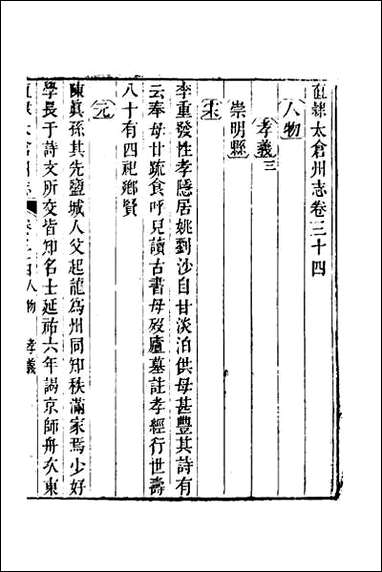 直隸太倉州志卷三十四
人物
孝義三
崇明縣
宋
李重發性孝隱居姚劉沙自甘淡泊供母甚豐其詩有
云奉母廿疏食呼兒讀古書母歿廬墓註孝經行世壽
八十有四祀鄉賢
元
陳眞孫其先鹽城人父起龍爲州同知秩滿家焉少好
學長于詩文所交皆知名士延祐六年謁京師舟次東
直隸太倉州志 卷三十四人物 孝義